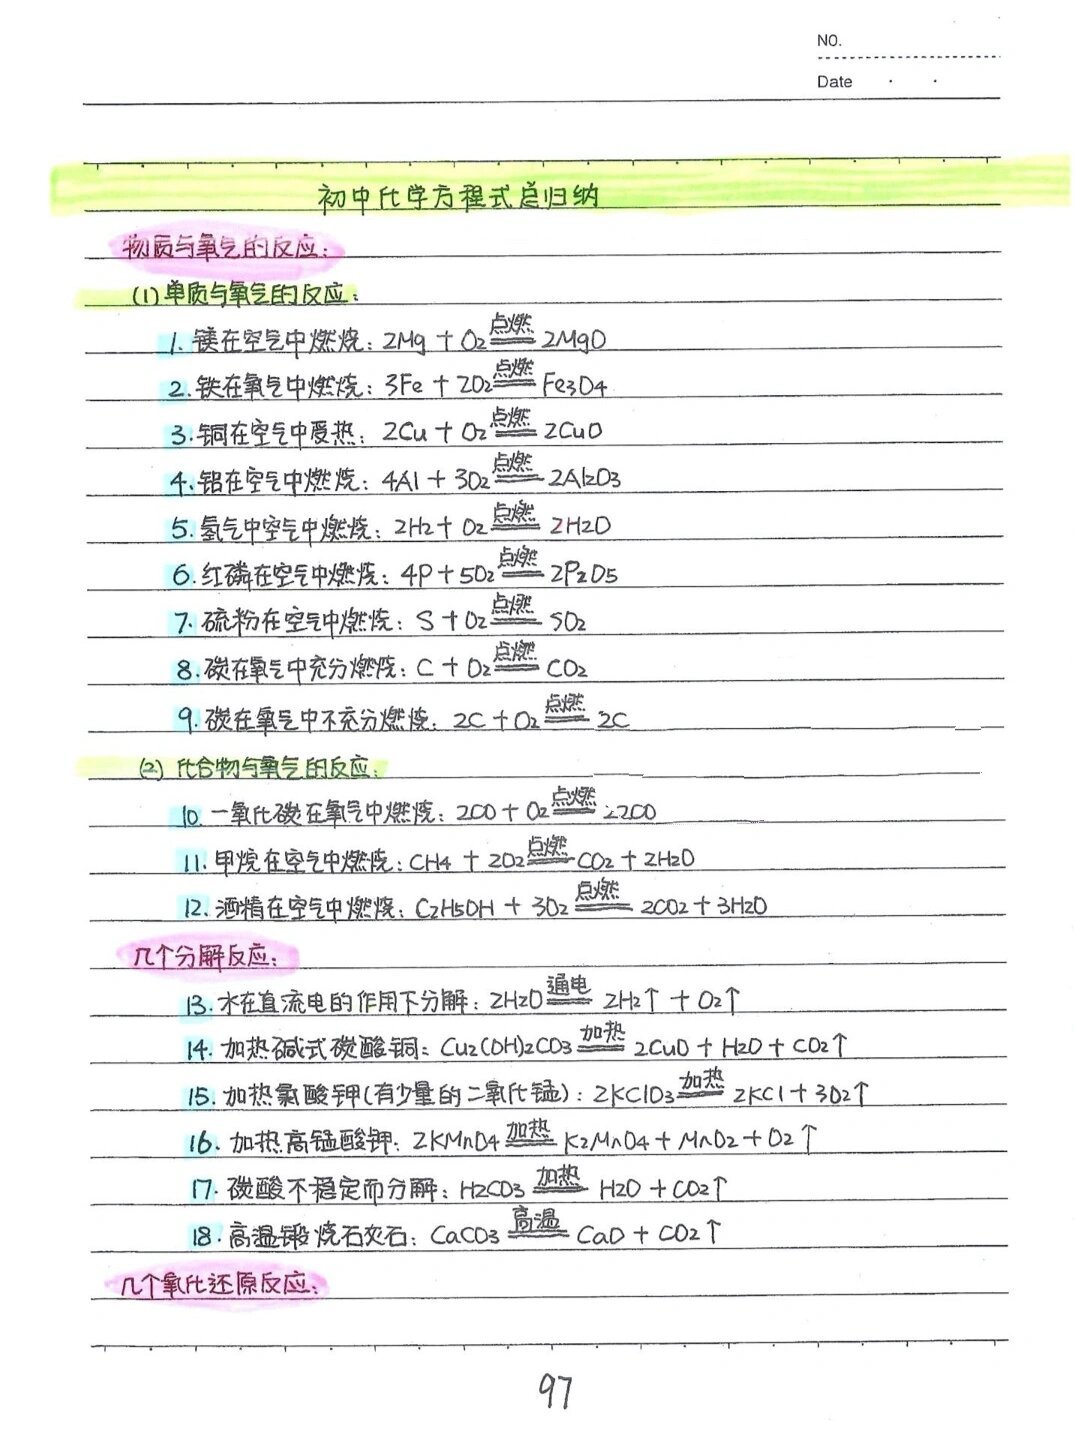 NO.
Date
初中化学方程式总归纳
物质与氧气的反应：
(1)单质与氧气的反应：
1.镁在空气中燃烧：2Mg + O2 点燃 2MgO
2.铁在氧气中燃烧：3Fe + 2O2 点燃 Fe3O4
3.铜在空气中受热：2Cu + O2 点燃 2CuO
4.铝在空气中燃烧：4Al + 3O2 点燃 2Al2O3
5.氢气中空气中燃烧：2H2 + O2 点燃 2H2O
6.红磷在空气中燃烧：4P + 5O2 点燃 2P2O5
7.硫粉在空气中燃烧：S + O2 点燃 SO2
8.碳在氧气中充分燃烧：C + O2 点燃 CO2
9.碳在氧气中不充分燃烧：2C + O2 点燃 2C
(2)化合物与氧气的反应：
10.一氧化碳在氧气中燃烧：2CO + O2 点燃 2CO
11.甲烷在空气中燃烧：CH4 + 2O2 点燃 CO2 + 2H2O
12.酒精在空气中燃烧：C2H5OH + 3O2 点燃 2CO2 + 3H2O
几个分解反应：
13.水在直流电的作用下分解：2H2O 通电 2H2↑ + O2↑
14.加热碱式碳酸铜：Cu2(OH)2CO3 加热 2CuO + H2O + CO2↑
15.加热氯酸钾(有少量的二氧化锰)：2KClO3 加热 2KCl + 3O2↑
16.加热高锰酸钾：2KMnO4 加热 K2MnO4 + MnO2 + O2↑
17.碳酸不稳定而分解：H2CO3 加热 H2O + CO2↑
18.高温锻烧石灰石：CaCO3 高温 CaO + CO2↑
几个氧化还原反应：
97